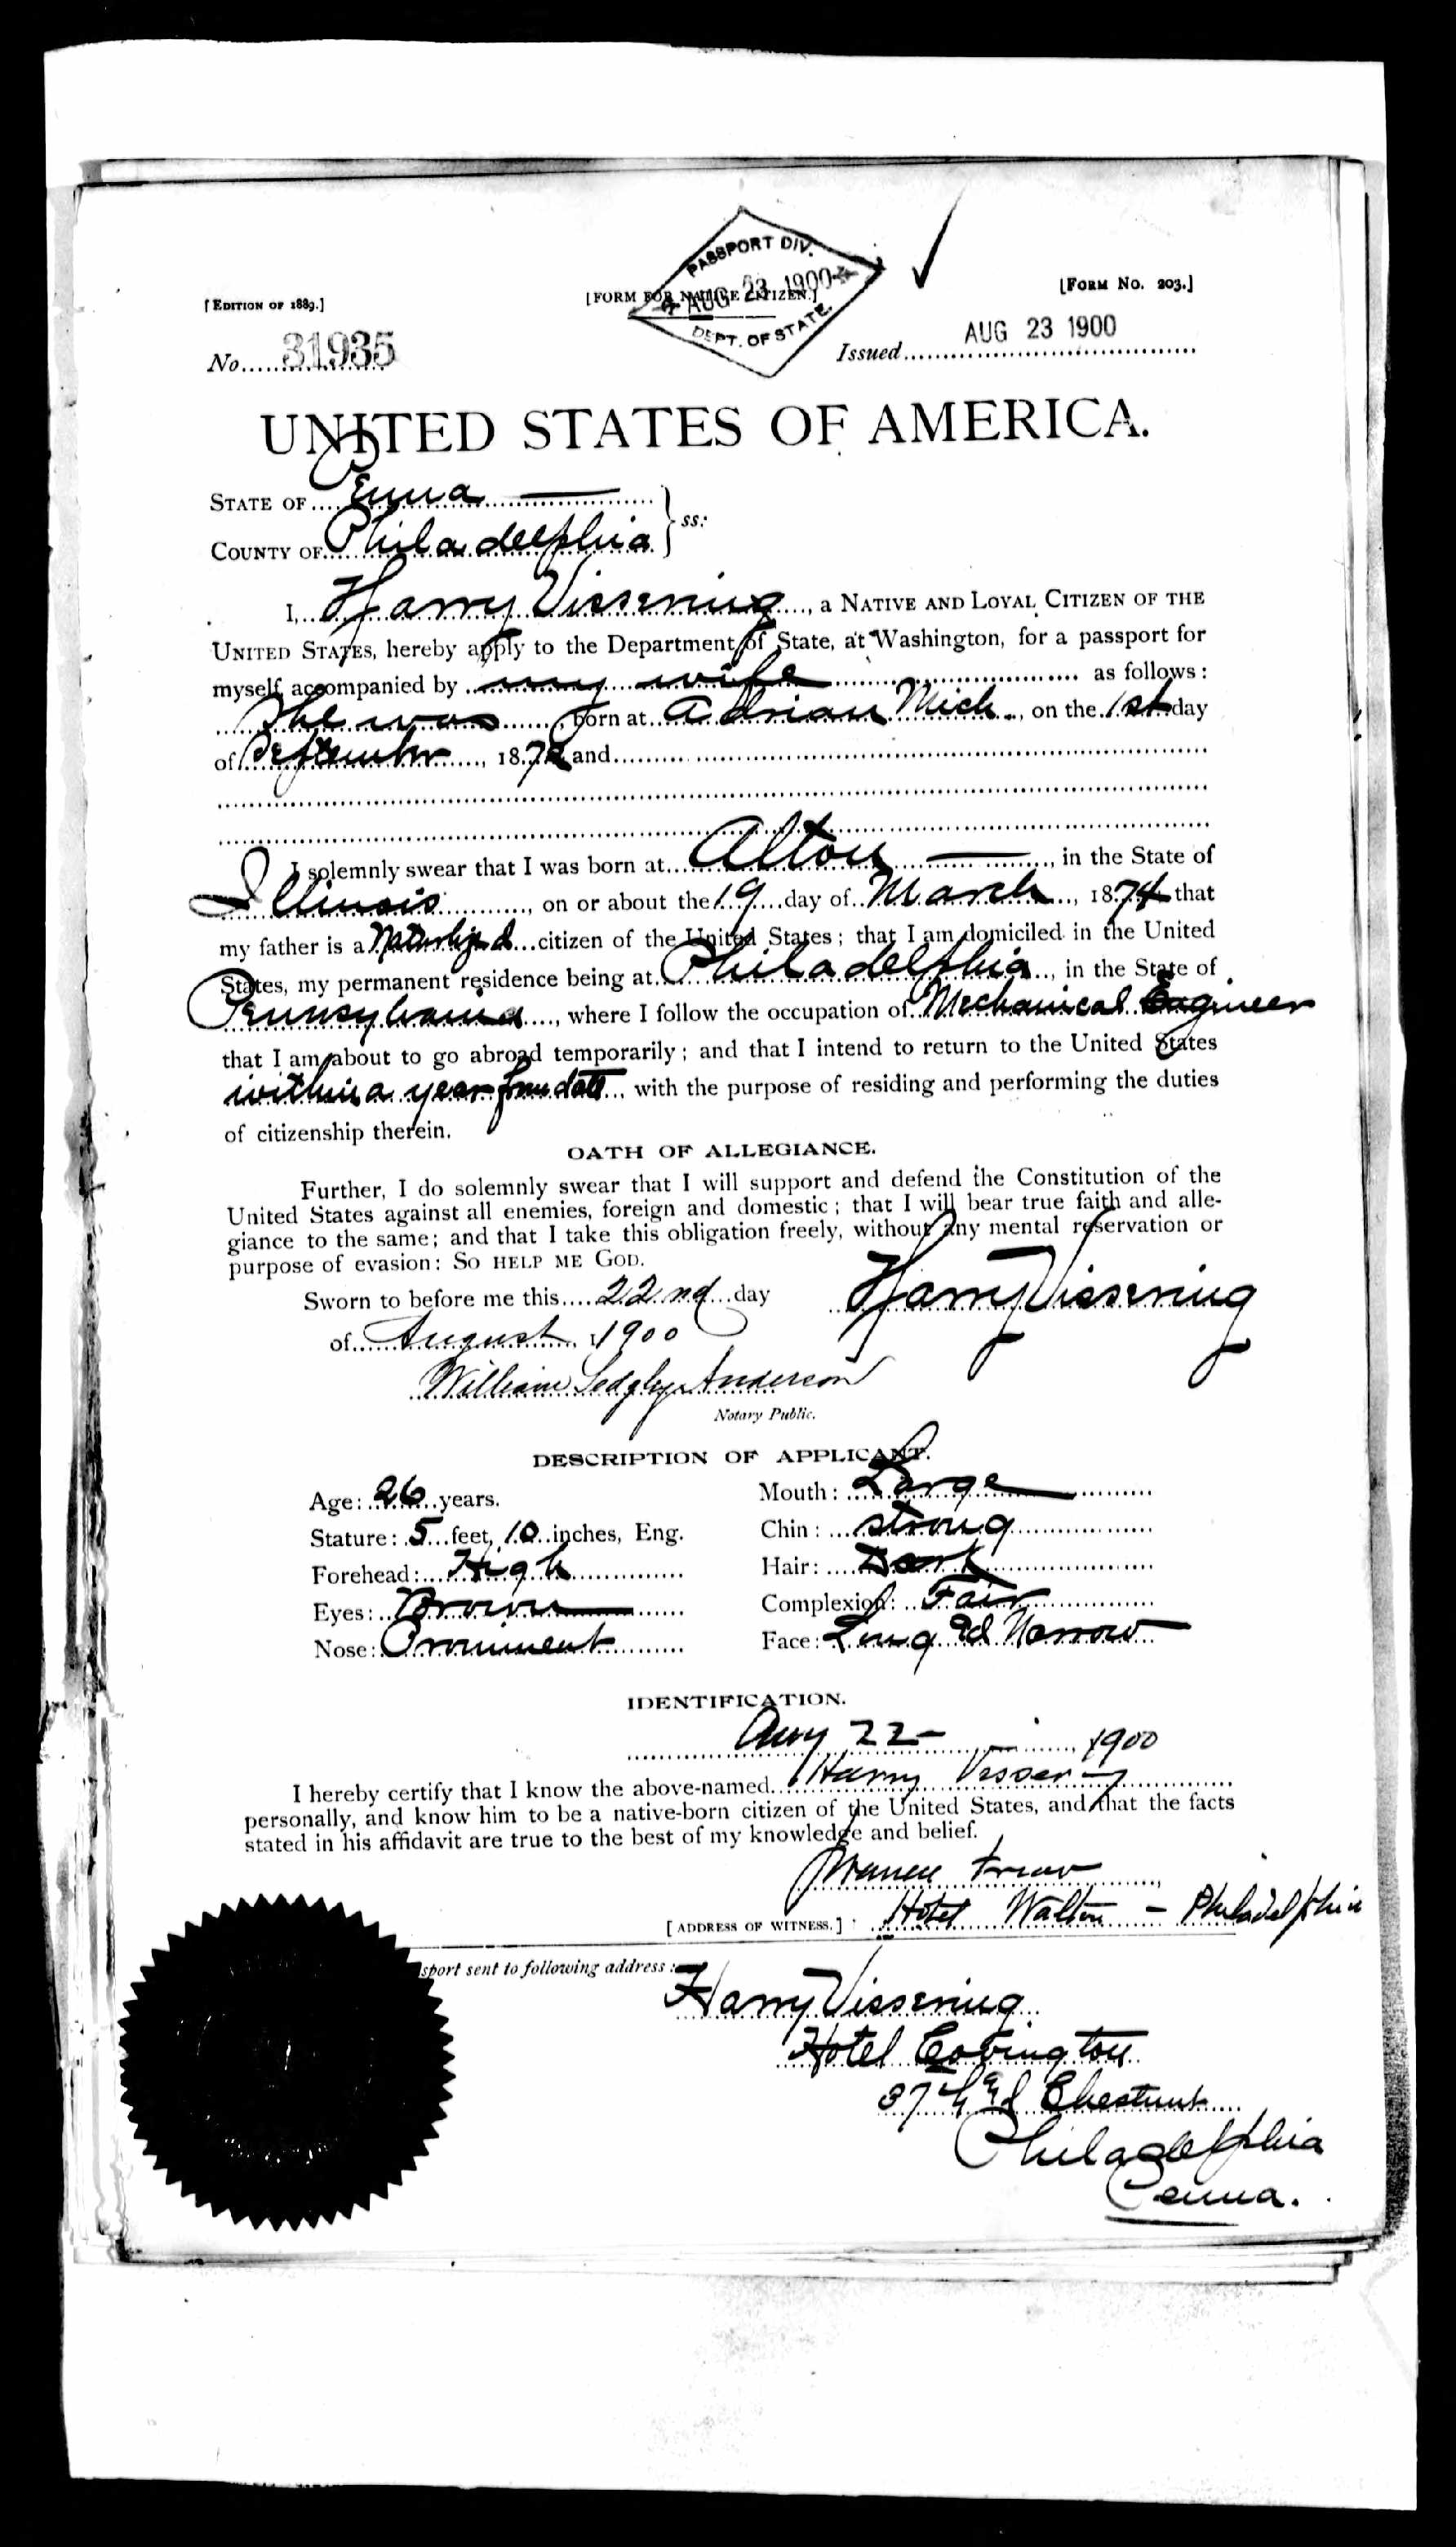 PASSPORT DIV.
AUG 23 1900
DEPT. OF STATE.
[EDITION OF 1889.]
[FORM FOR NATIVE CITIZEN.]
[FORM No. 203.]
No. 31935
Issued AUG 23 1900
UNITED STATES OF AMERICA.
STATE OF Penna
COUNTY OF Philadelphia } ss:
I, Harry Vissering, a NATIVE AND LOYAL CITIZEN OF THE
UNITED STATES, hereby apply to the Department of State, at Washington, for a passport for
myself, accompanied by my wife as follows:
She was born at Adrian Mich., on the 1st day
of September, 187 and
I solemnly swear that I was born at Alton, in the State of
Illinois, on or about the 19 day of March, 1874 that
my father is a Naturalized citizen of the United States; that I am domiciled in the United
States, my permanent residence being at Philadelphia, in the State of
Pennsylvania, where I follow the occupation of Mechanical Engineer
that I am about to go abroad temporarily; and that I intend to return to the United States
within a year from date with the purpose of residing and performing the duties
of citizenship therein.
OATH OF ALLEGIANCE.
Further, I do solemnly swear that I will support and defend the Constitution of the
United States against all enemies, foreign and domestic; that I will bear true faith and alle-
giance to the same; and that I take this obligation freely, without any mental reservation or
purpose of evasion: SO HELP ME GOD.
Sworn to before me this 22nd day
Harry Vissering
of August, 1900
William Sedgley Anderson
Notary Public.
DESCRIPTION OF APPLICANT.
Age: 26 years.
Mouth: Large
Stature: 5 feet, 10 inches, Eng.
Chin: Strong
Forehead: High
Hair: Dark
Eyes: Brown
Complexion: Fair
Nose: Prominent
Face: Long & Narrow
IDENTIFICATION.
Aug 22 - 1900
I hereby certify that I know the above-named Harry Vissering
personally, and know him to be a native-born citizen of the United States, and that the facts
stated in his affidavit are true to the best of my knowledge and belief.
[ADDRESS OF WITNESS.] Hotel Walton - Philadelphia
sport sent to following address:
Harry Vissering
Hotel Covington
37th & Chestnut
Philadelphia
Penna.